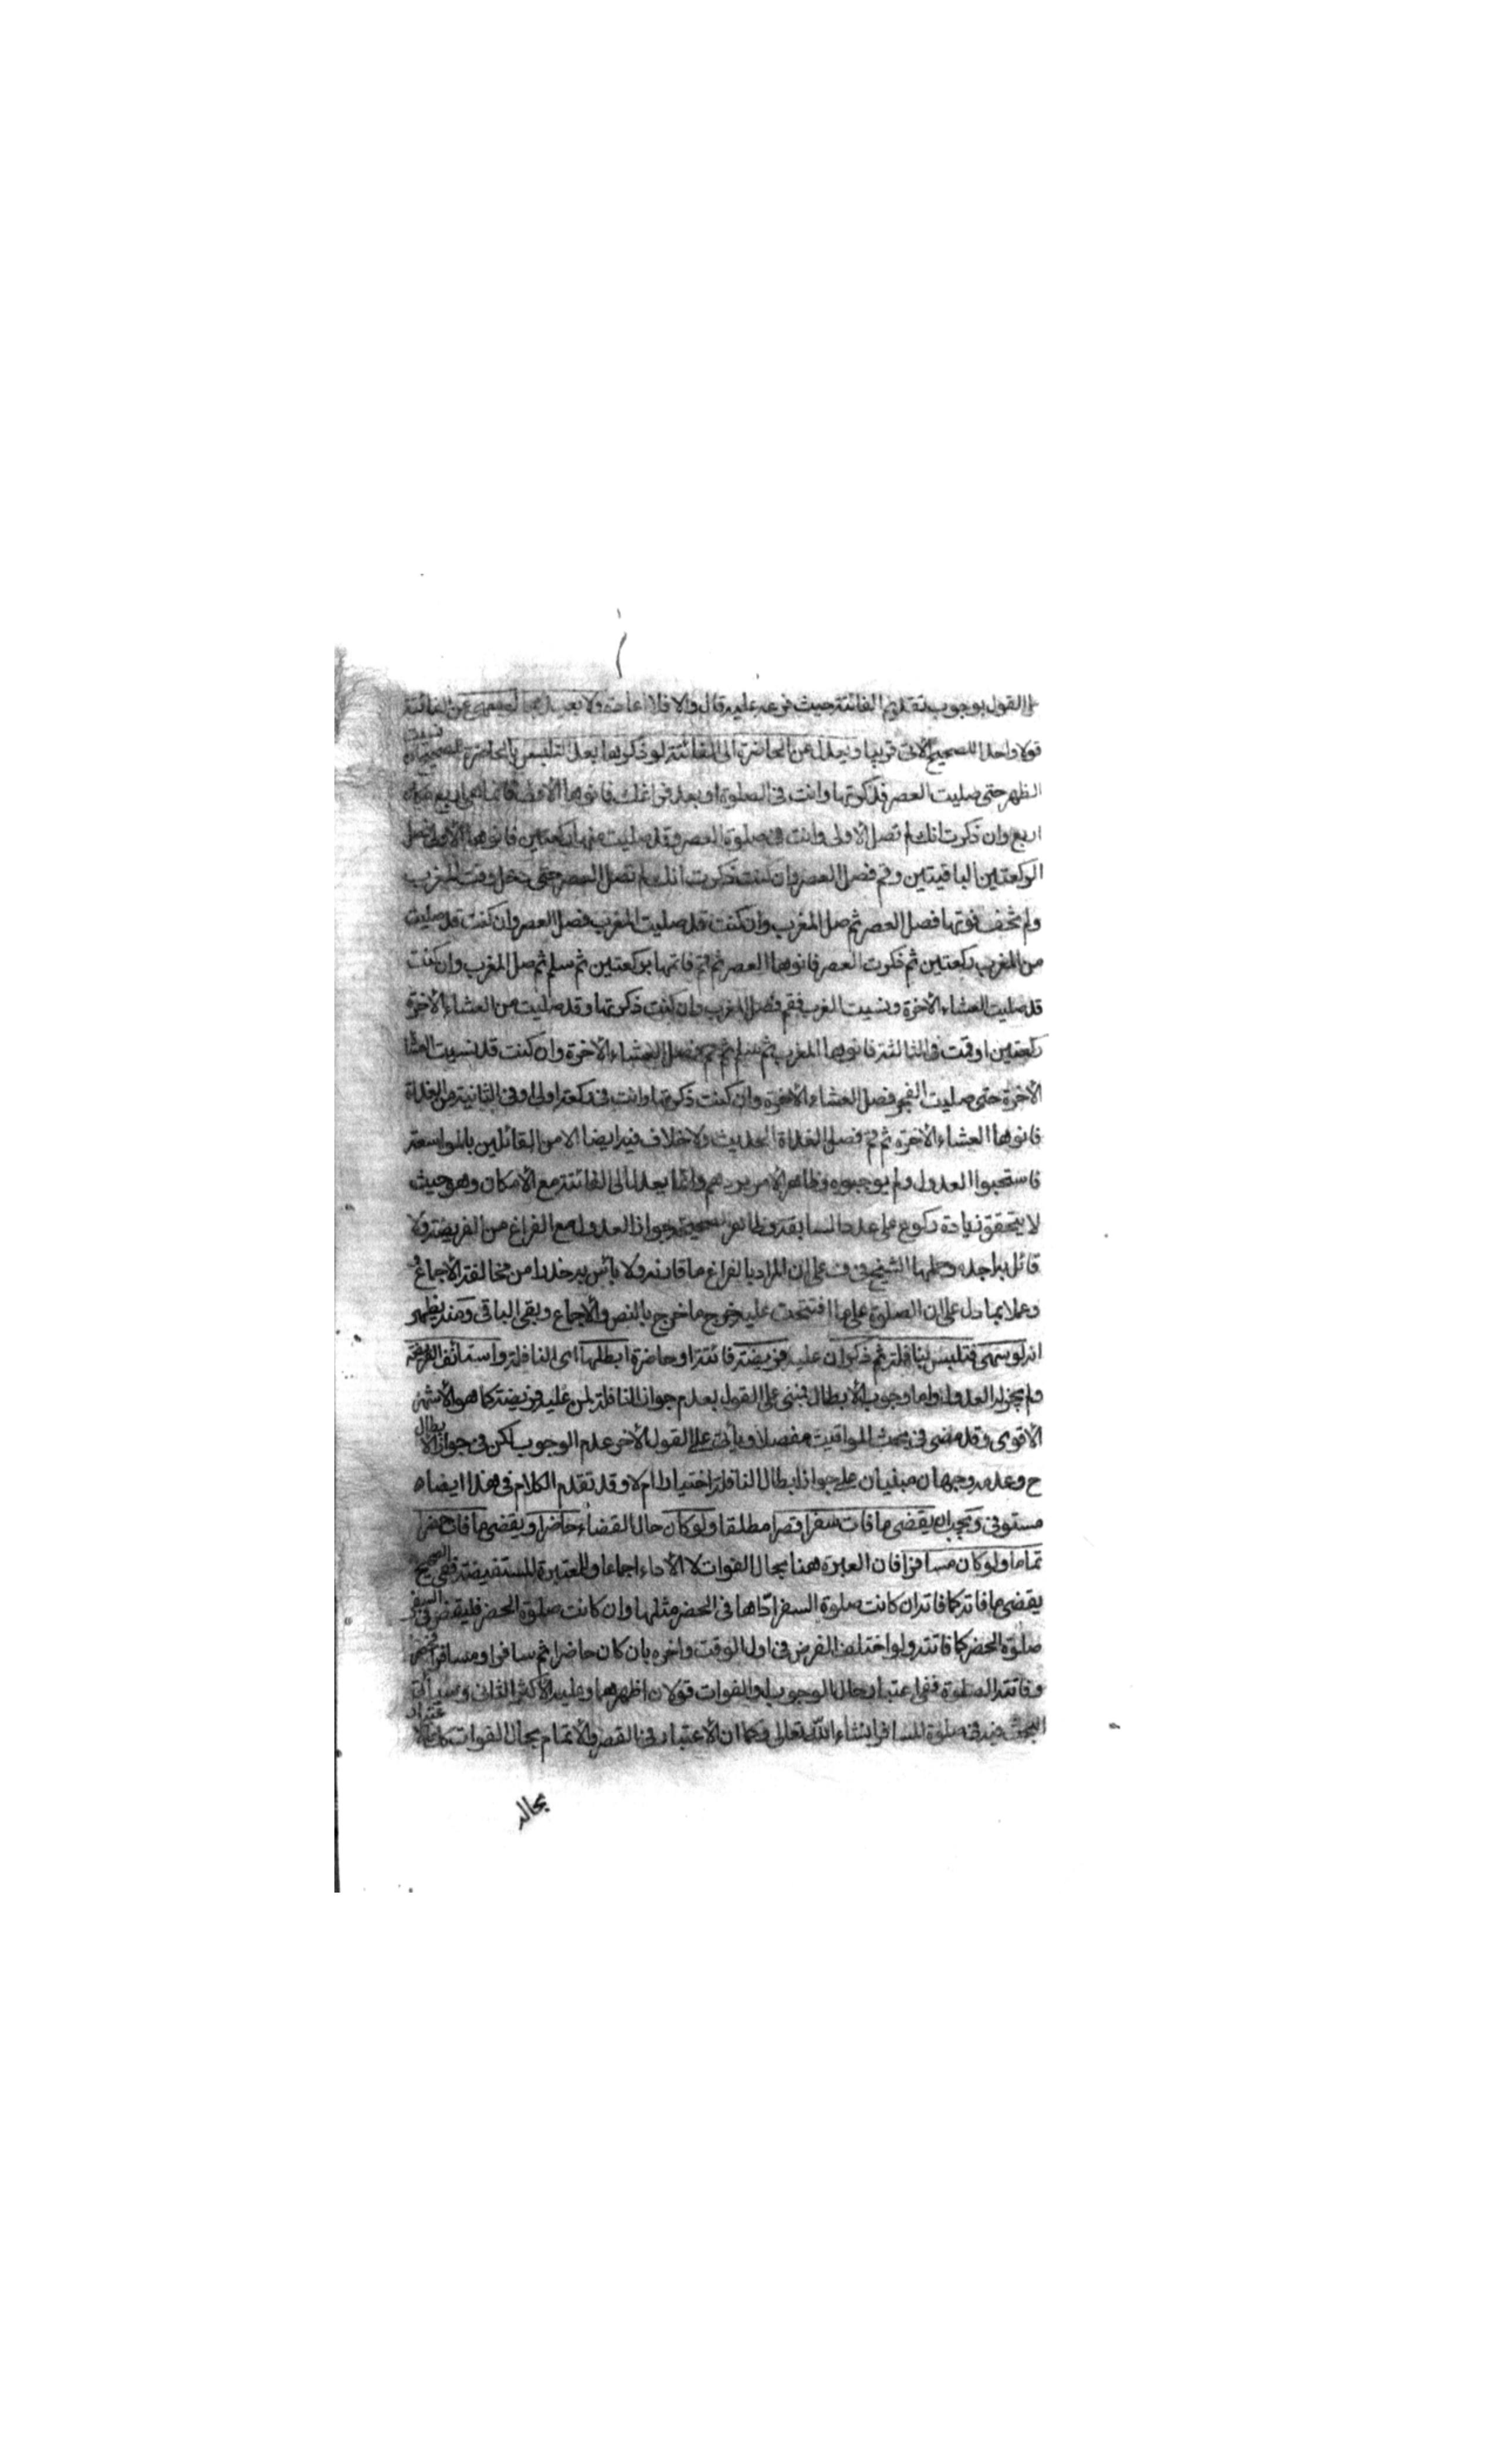 على القول بوجوب تقديم الفائتة حيث فرعه عليه قال والا فلا اعادة ولا يعدل
قولا واحدا للصحيح الاتى قريبا ويعدل عن الحاضرة الى الفائتة لو ذكرها بعد التلبس بالحاضرة للصحيح
الظهر حتى صليت العصر فذكرتها وانت فى الصلوة او بعد فراغك فانوها الأولى فانما هى اربع مكان
اربع وان ذكرت انك لم تصل الأولى وانت فى صلوة العصر وقد صليت منها ركعتين فانوها الأولى فصل
الركعتين الباقيتين وقم فصل العصر وان كنت ذكرت انك لم تصل العصر حتى دخل وقت المغرب
ولم تخف فوتها فصل العصر ثم صل المغرب وان كنت قد صليت المغرب فصل العصر وان كنت قد صليت
من المغرب ركعتين ثم ذكرت العصر فانوها العصر ثم قم فاتمها بركعتين ثم سلم ثم صل المغرب وان كنت
قد صليت العشاء الأخرة ونسيت المغرب فقم فصل المغرب وان كنت ذكرتها وقد صليت من العشاء الأخرة
ركعتين او قمت فى الثالثة فانوها المغرب ثم سلم ثم قم فصل العشاء الأخرة وان كنت قد نسيت العشا
الأخرة حتى صليت الفجر فصل العشاء الأخرة وان كنت ذكرتها وانت فى ركعة اولى او فى الثانية من الغداة
فانوها العشاء الأخرة ثم قم فصل الغداة الحديث ولا خلاف فيه ايضا الا من القائلين بالمواسعة
فاستحبوا العدول ولم يوجبوه وظاهر الأمر يردهم وانما يعدل الى الفائتة مع الأمكان وهو حيث
لا يتحقق زيادة ركوع على عدد السابقة وظاهر الصحيح جواز العدول مع الفراغ من الفريضة ولا
قائل به اجده وحملها الشيخ فى ف على ان المراد بالفراغ ما قاربه ولا بأس به حذرا من مخالفة الأجماع
وعملا بما دل على ان الصلوة على ما افتتحت عليه خرج ما خرج بالنص والأجماع وبقى الباقى ومنه يظهر
انه لو سهى فتلبس بنافلة ثم ذكر ان عليه فريضة فائتة او حاضرة ابطلها اى النافلة واستأنف الفريضة
ولم يجز له العدول واما وجوب الأبطال فمبنى على القول بعدم جواز النافلة لمن عليه فريضة كما هو الأشهر
الأقوى وقد مضى فى بحث المواقيت مفصلا ويأتى على القول الأخر عدم الوجوب لكن فى جواز الأبطال
ح وعدمه وجهان مبنيان على جواز ابطال النافلة اختيارا ام لا وقد تقدم الكلام فى هذا ايضا
مستوفى ويجب ان يقضى ما فات سفرا قصرا مطلقا ولو كان حال القضاء حاضرا ويقضى ما فات حضرا
تماما ولو كان مسافرا فان العبرة هنا بحال الفوات لا الأداء اجماعا وللمعتبرة المستفيضة ففى الصحيح
يقضى ما فاته كما فاته ان كانت صلوة السفر ادّاها فى الحضر مثلها وان كانت صلوة الحضر فليقض فى السفر
صلوة الحضر كما فاتته ولو اختلف الفرض فى اول الوقت واخره بان كان حاضرا ثم سافر او مسافرا فحضر
وفاتته الصلوة ففى اعتبار حال الوجوب او الفوات قولان اظهرهما وعليه الأكثر الثانى وسيأتى
البحث فيه فى صلوة المسافر انشاء الله تعالى وكما ان الأعتبار فى القصر والأتمام بحال الفوات
بحاله